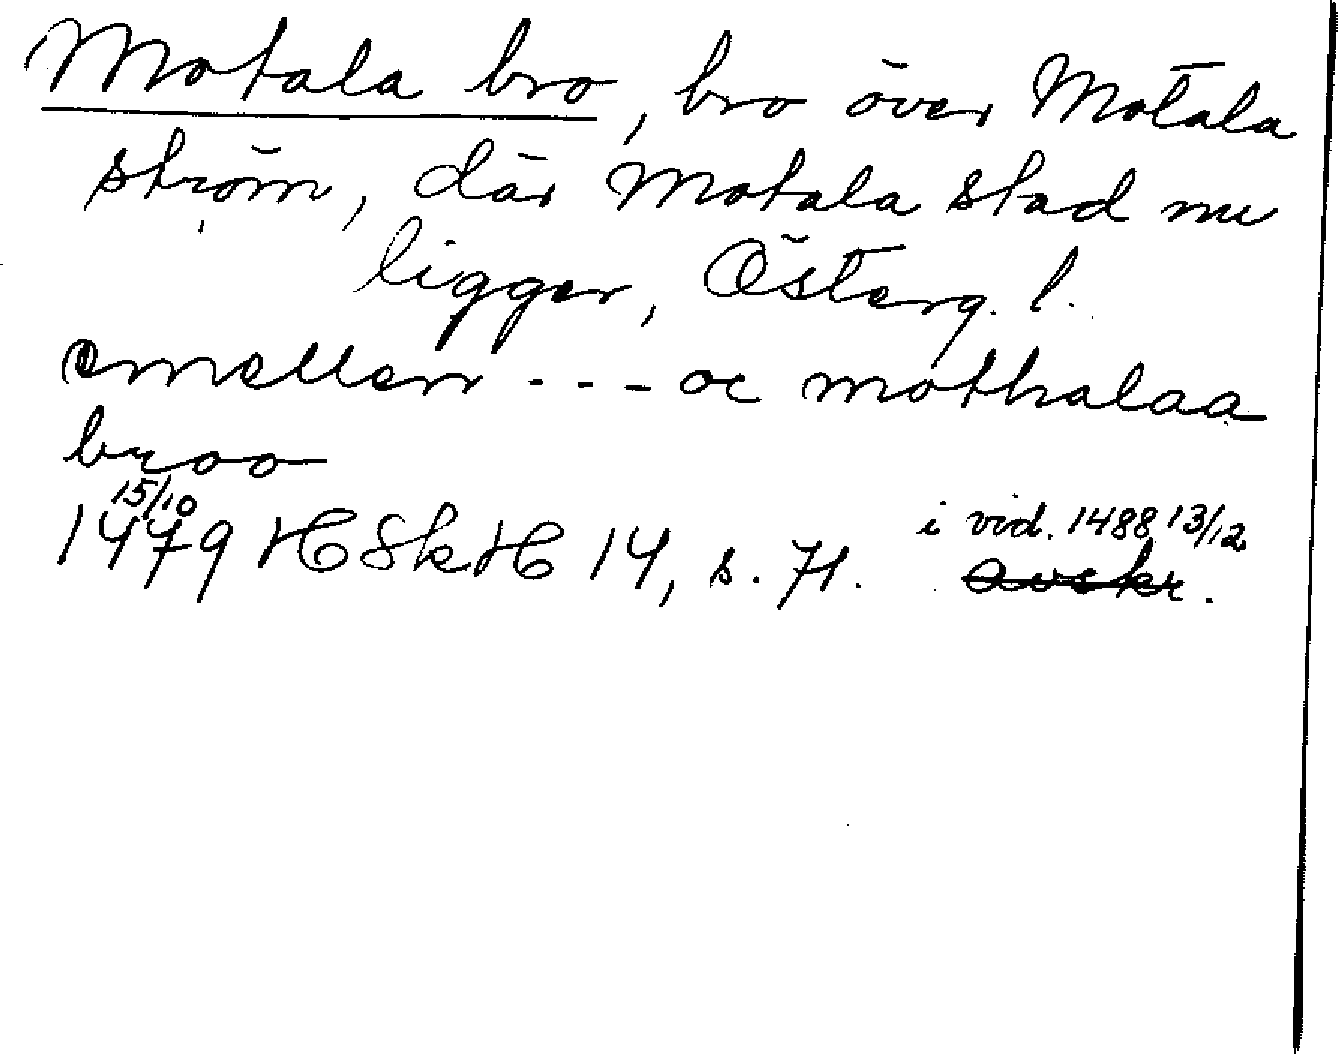 Motala bro, bro över Motala
ström, där Motala stad nu
ligger, Österg. l.
emellen --- oc mothalaa
broo
15/10
1479 HSkH 14, s. 71. i vid. 1488 13/12
avskr.